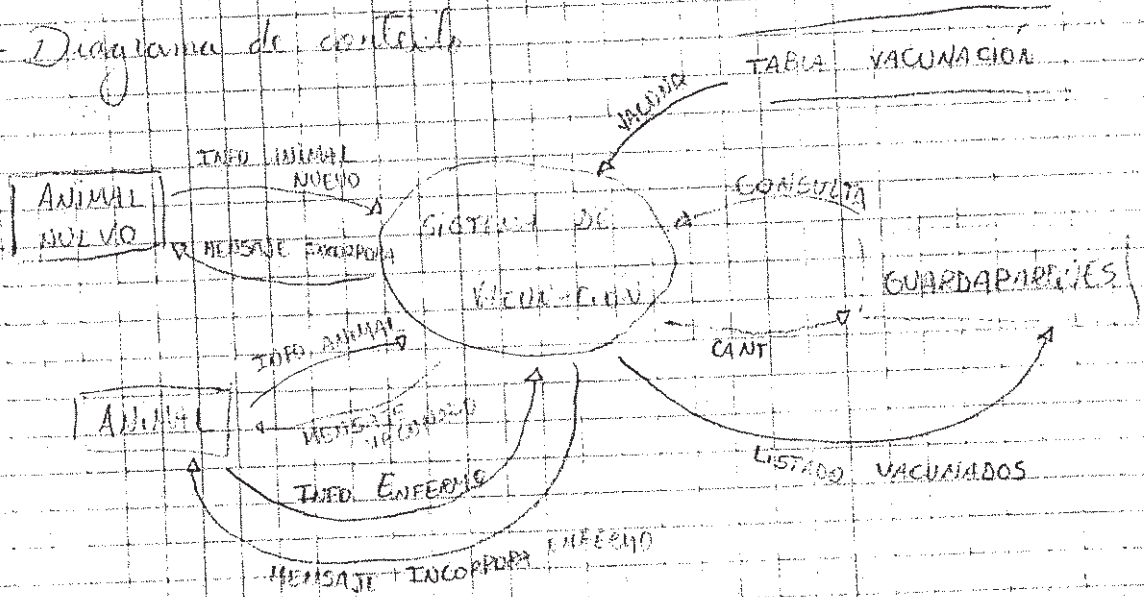 - Diagrama de contexto
TABLA VACUNACIÓN
VACUNA
INFO ANIMAL
NUEVO
ANIMAL
NUEVO
MENSAJE INCORPORA
SISTEMA DE
VACUNACION
CONSULTA
GUARDAPARQUES
CANT
INFO. ANIMAL
ANIMAL
MENSAJE
LISTADO VACUNADOS
INFO ENFERMO
MENSAJE INCORPORA ENFERMO